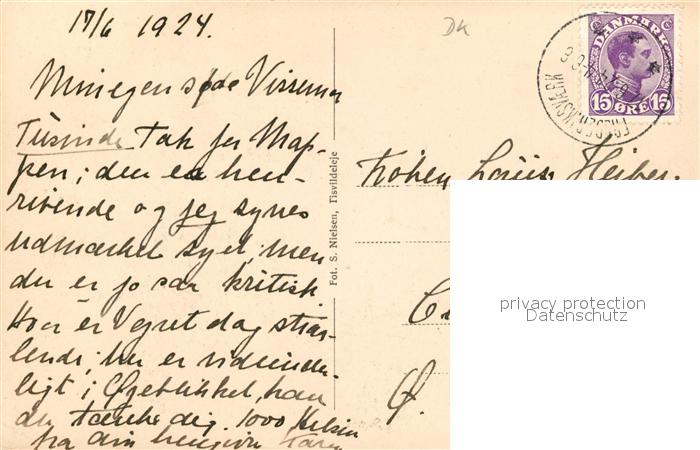 17/6 1924.
DK
Min egen søde
Tusinde Tak for Map-
pen; den er hen-
rivende og jeg synes
udmærket syet, men
du er jo saa kritisk
Hvor er Vejret dog straa-
lende; her er vidunder-
ligt i Øjeblikket, kan
du tænke dig. 1000 Hilsen
fra din hengivne
Fot. S. Nielsen, Tisvildeleje
DANMARK
15 ØRE 15
FREDERIKSVÆRK
Frøken Louise Heiber
Ø.
privacy protection
Datenschutz